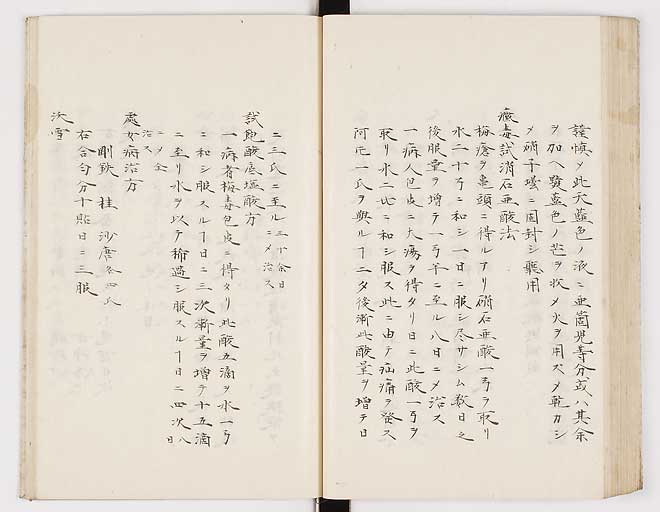 謹慎メ此天藍色ノ液ニ亜箇児等分或ハ其余
ヲ加ヘ蓝色ノ芒ヲ状メ火ヲ用スメ乾カシ
メ硝子壜ニ固封シ聴用
黴毒試消石亜酸法
梅瘡ヲ亀頭ニ得ルアリ硝石亜酸一弓ヲ取リ
水二十弓ニ和シ一日ニ服シ尽サシム数日之
後服量ヲ増テ一弓半ニ至ル八日ニメ治ス
一病人包皮ニ大瘍ヲ得タリ日ニ此酸一弓ヲ
取リ水二比ニ和シ服ス此ニ由テ疝痛ヲ發ス
阿芢一氏ヲ與ルヿ二夕後漸此酸量ヲ増テ日
ニ三氏ニ至ル三十余日
ニメ治ス
試飽酸底塩酸方
一病者梅毒包皮ニ得タリ此酸五滴ヲ水一弓
ニ和シ服スルヿ日ニ三次漸量ヲ増テ十五滴
ニ至リ水ヲ以テ稀過シ服スルヿ日ニ四次八日
ニメ全
治ス
處女病治方
剛鉄 桂 沙唐各四氏
右合匀分十貼日ニ三服
次雪